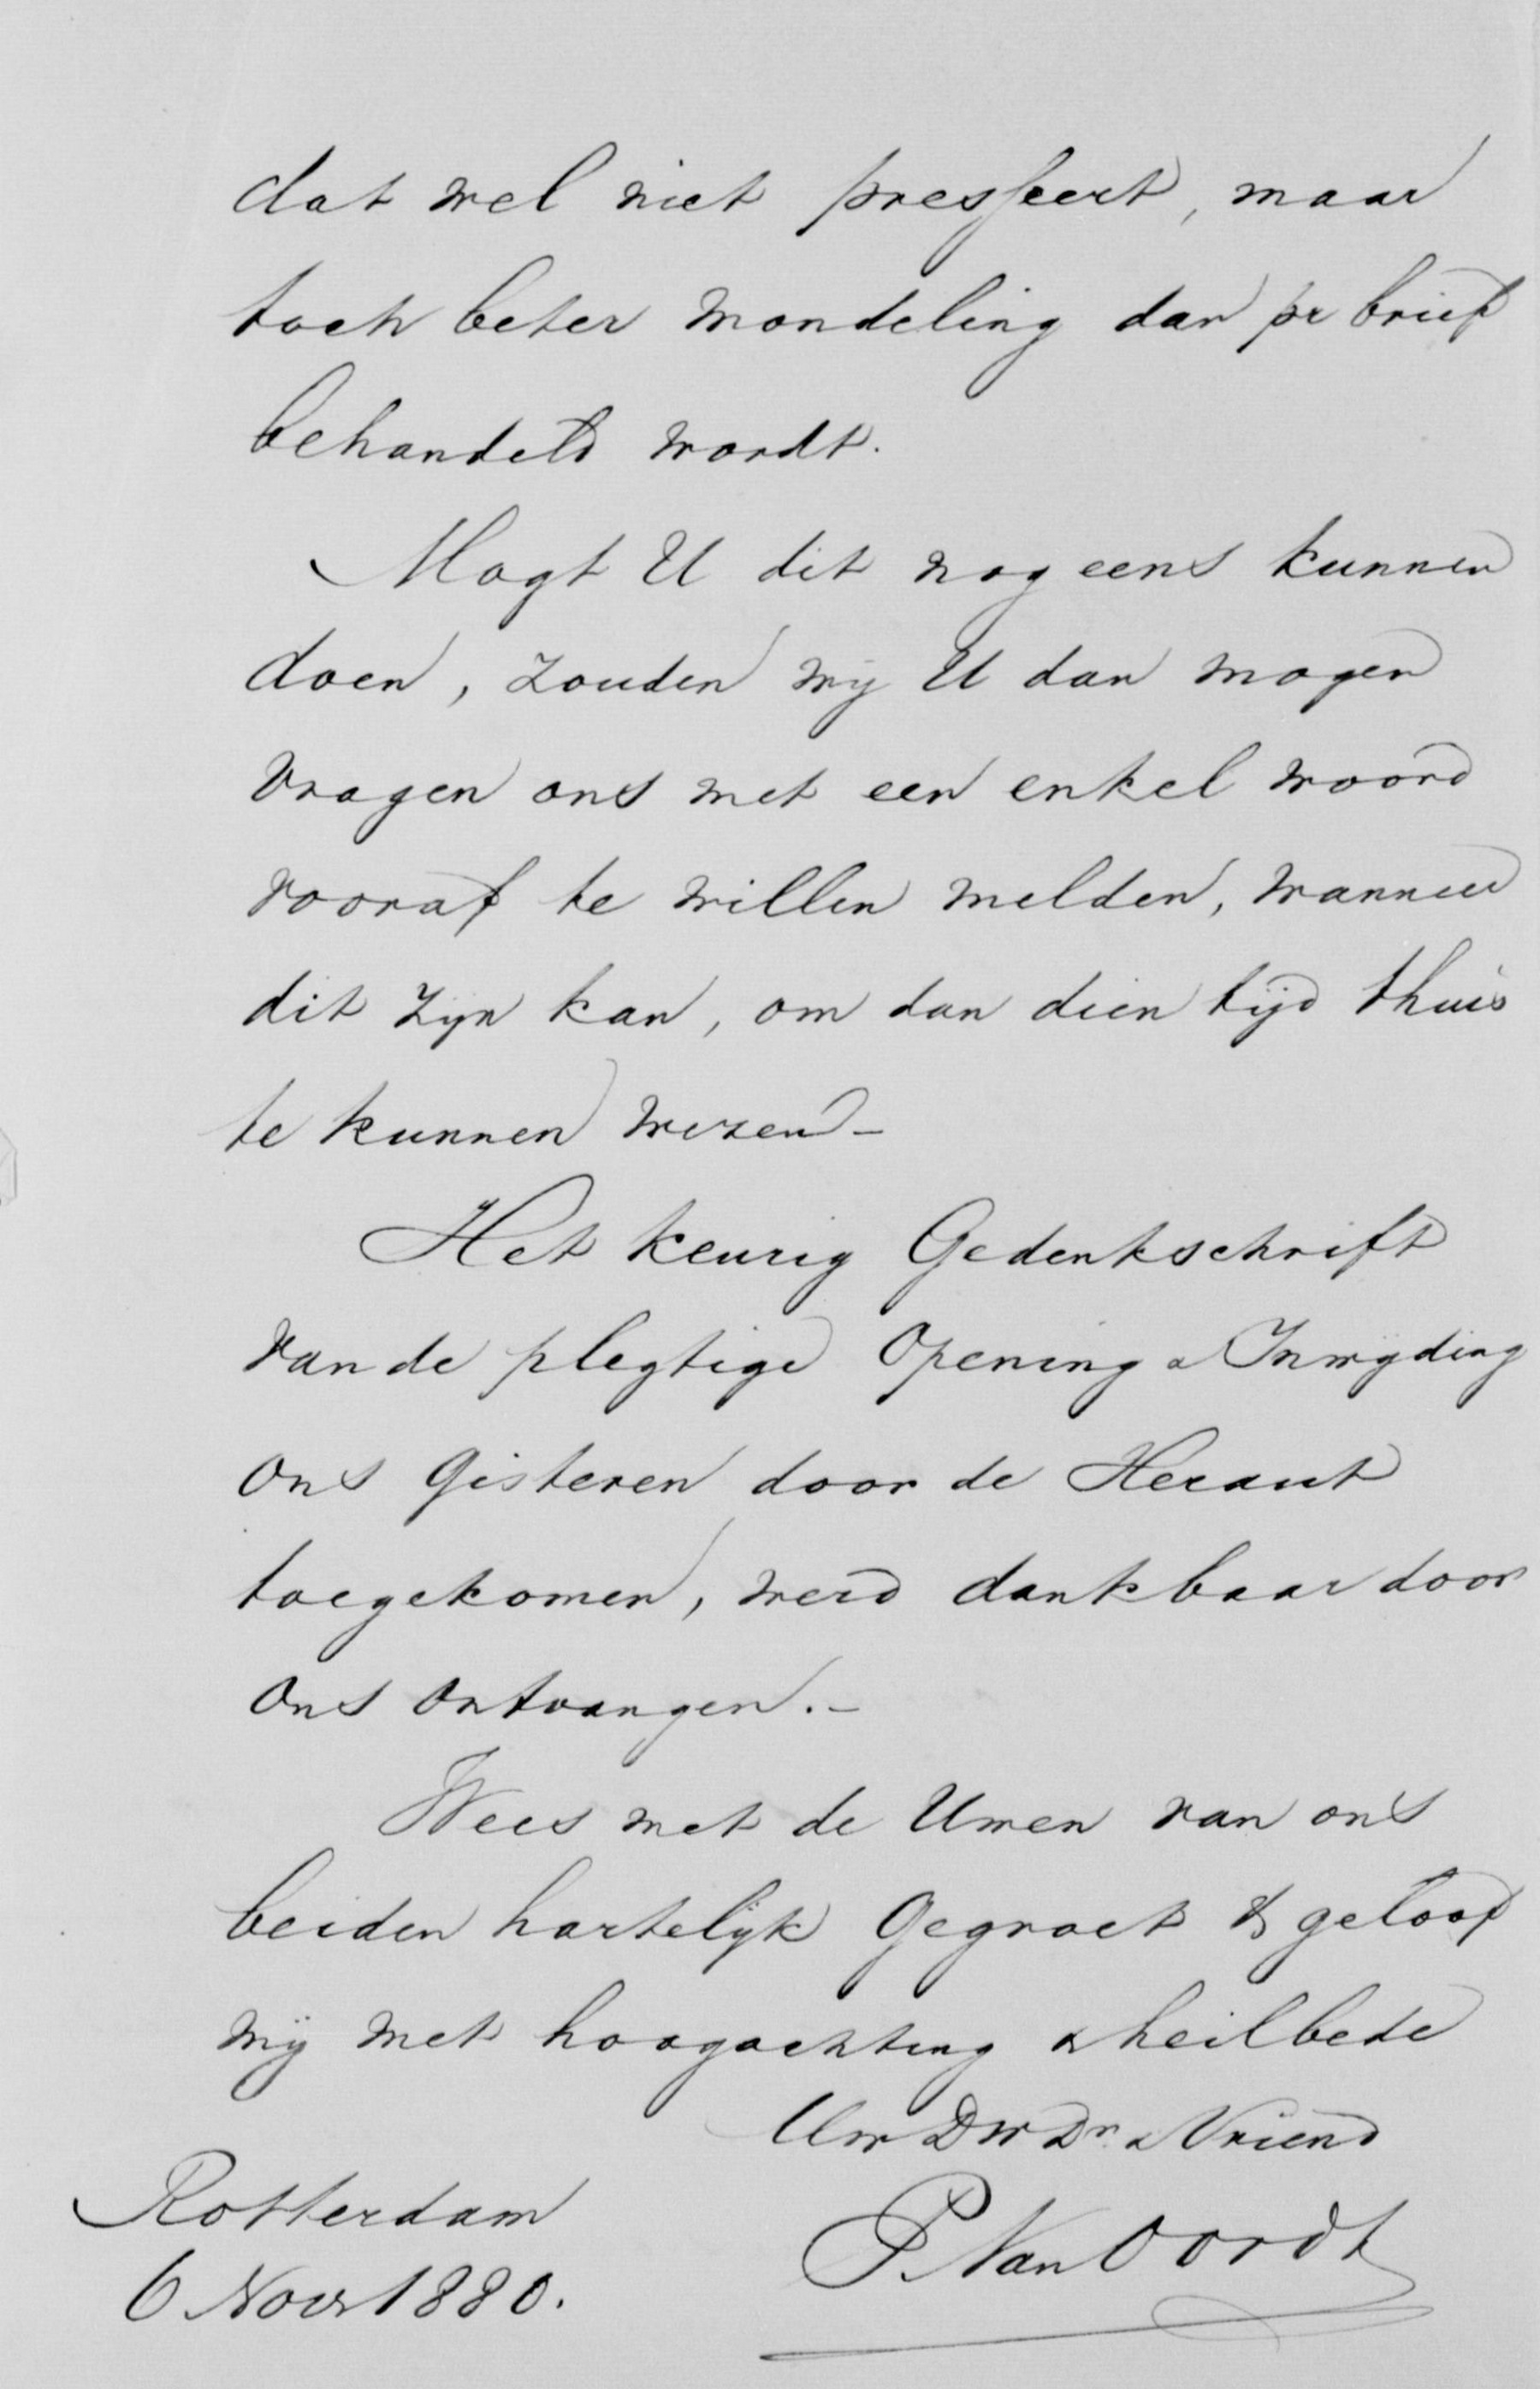 dat wel niet presseert, maar
toch beter mondeling dan pr brief
behandeld wordt.
Mogt U dit nog eens kunnen
doen, zouden wij U dan mogen
vragen ons met een enkel woord
vooraf te willen melden, wanneer
dit zijn kan, om dan dien tijd thuis
te kunnen wezen -
Het keurig Gedenkschrift
van de plegtige Opening & Inwijding
ons gisteren door de Heraut
toegekomen, werd dankbaar door
ons ontvangen. -
Wees met de Uwen van ons
beiden hartelijk gegroet & geloof
mij met hoogachting & heilbede
Uw DWDr & Vriend
P. Van Oordt
Rotterdam
6 Novr 1880.